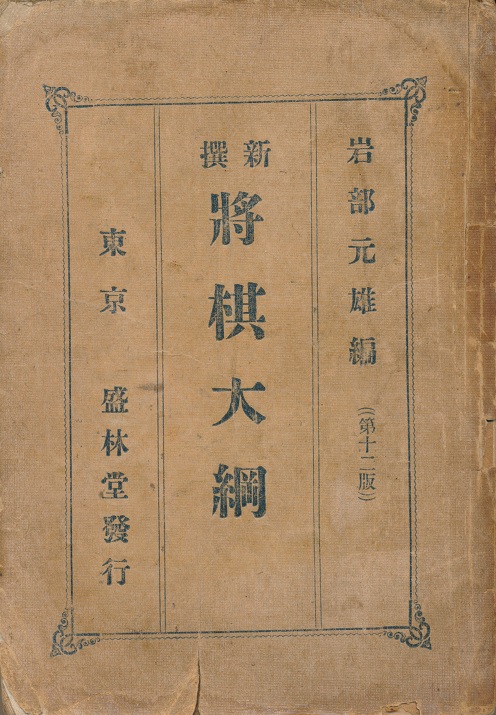 岩部元雄編
(第十二版)
新撰
將棋大綱
東京 盛林堂發行